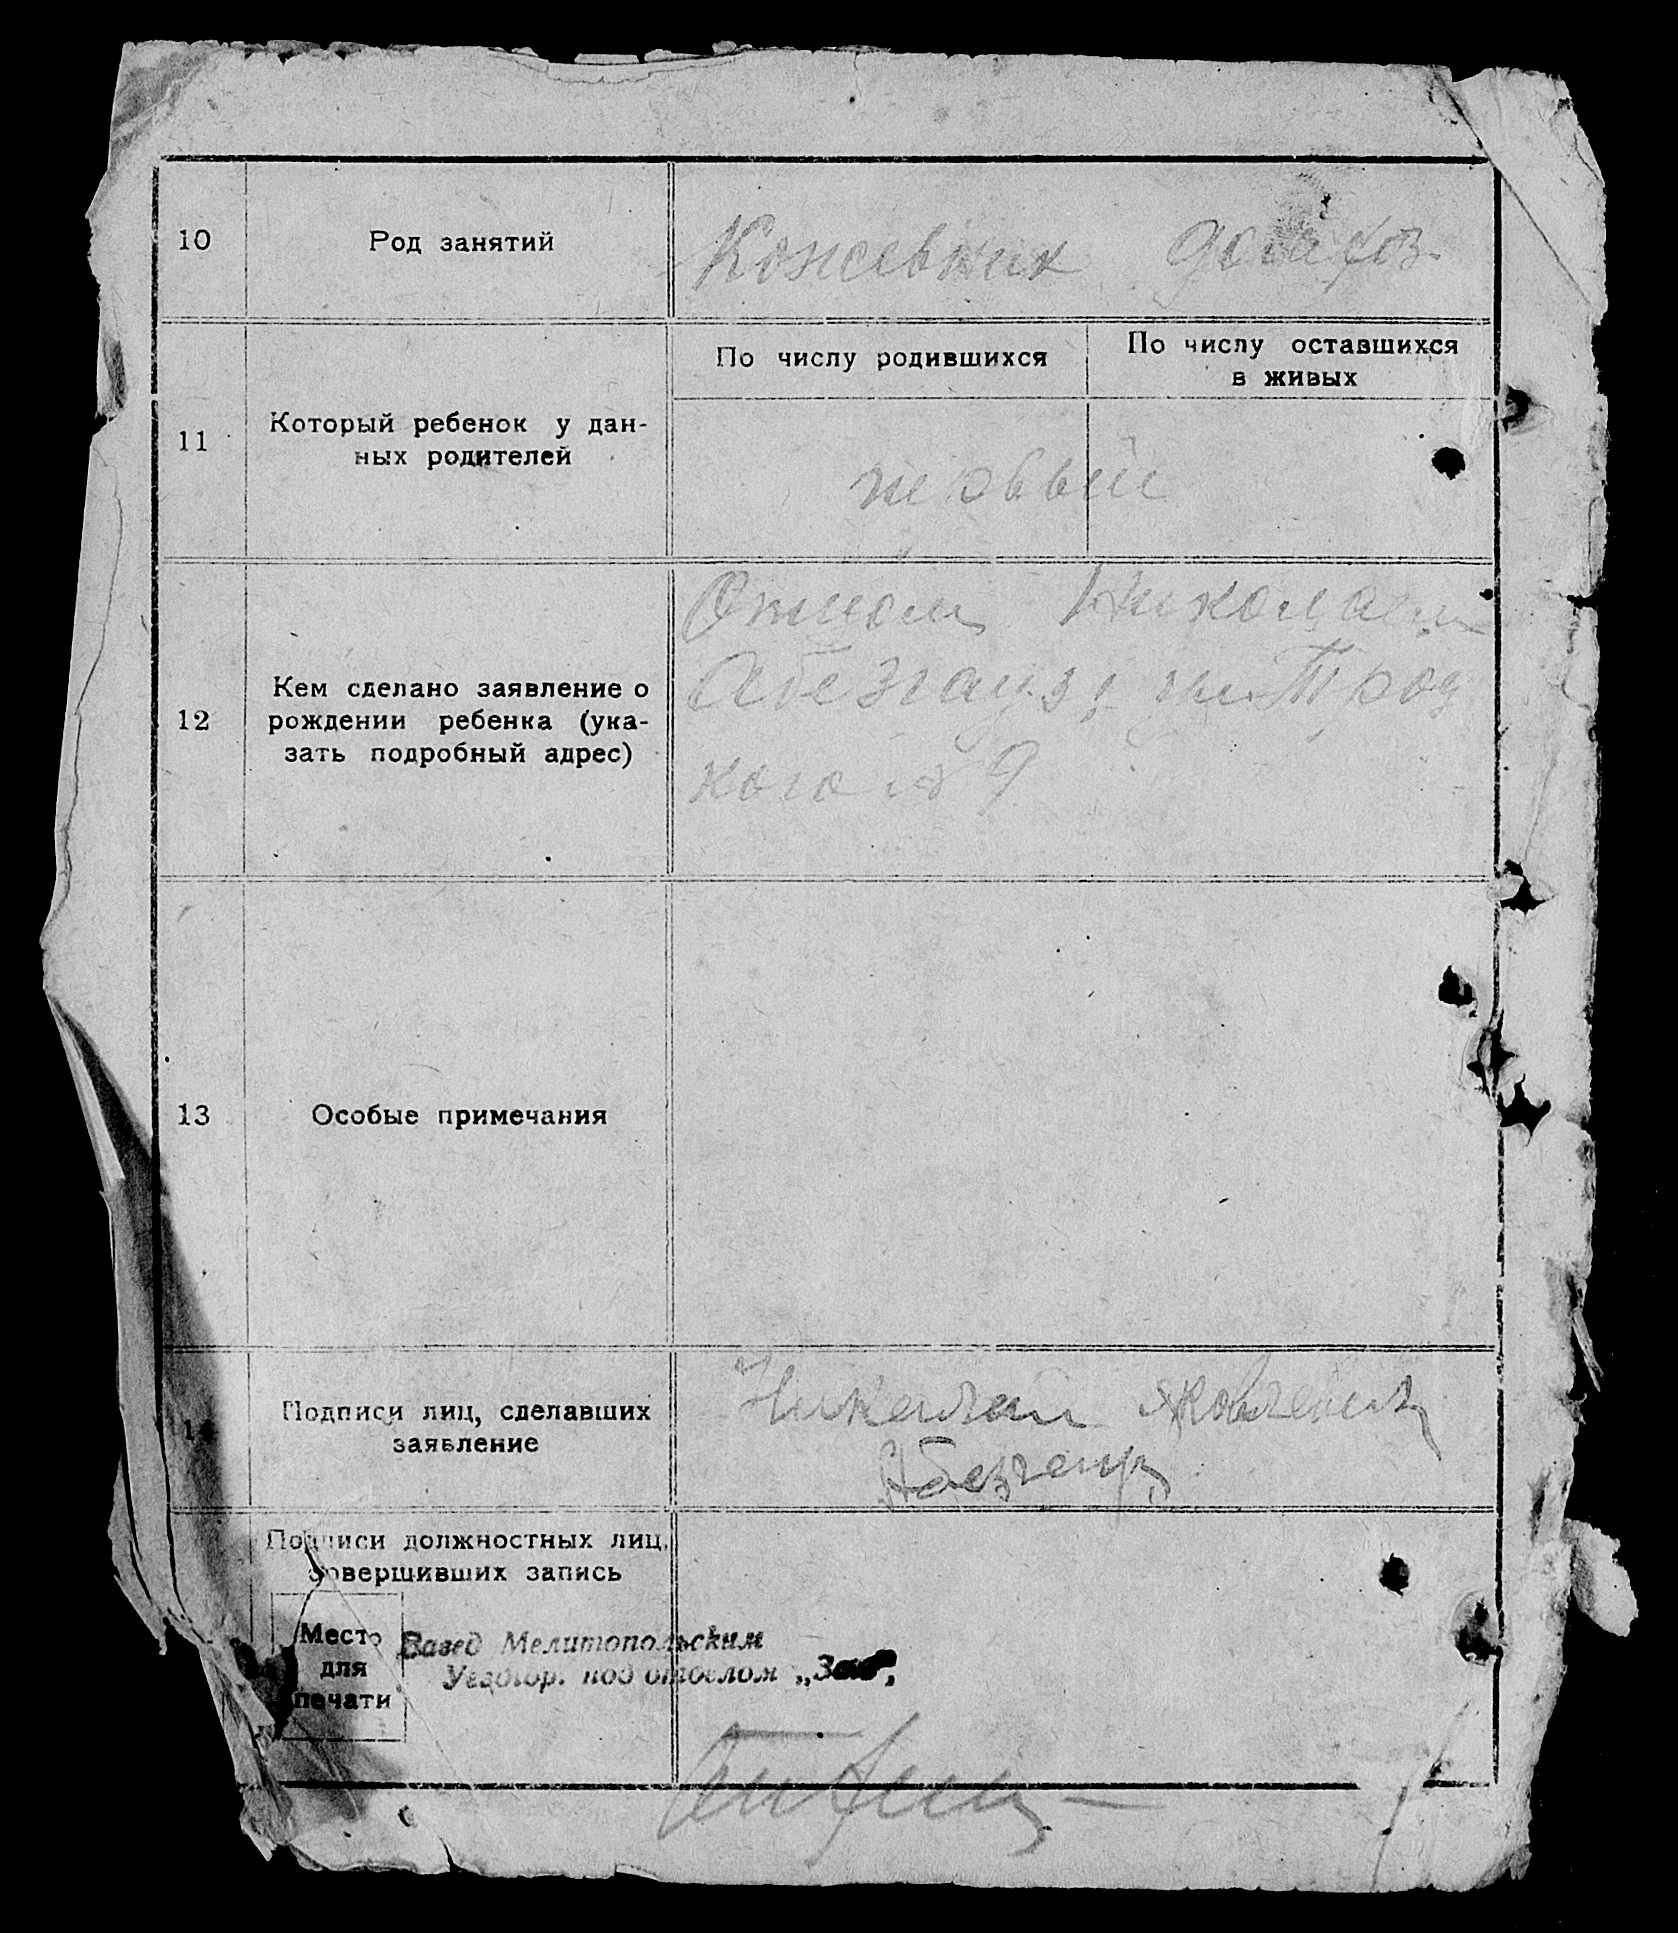 10
Род занятий
Кожевник домахоз.
По числу родившихся
По числу оставшихся
в живых
11
Который ребенок у дан-
ных родителей
первый
12
Кем сделано заявление о
рождении ребенка (ука-
зать подробный адрес)
Отцом Николаем
Абезгауз, ул. Троц
кого № 9
13
Особые примечания
14
Подписи лиц, сделавших
заявление
Николай Яковлевич
Абезгауз
Подписи должностных лиц,
совершивших запись
Место
для
печати
Завед Мелитопольским
Уездгор. под отделом „Загс"